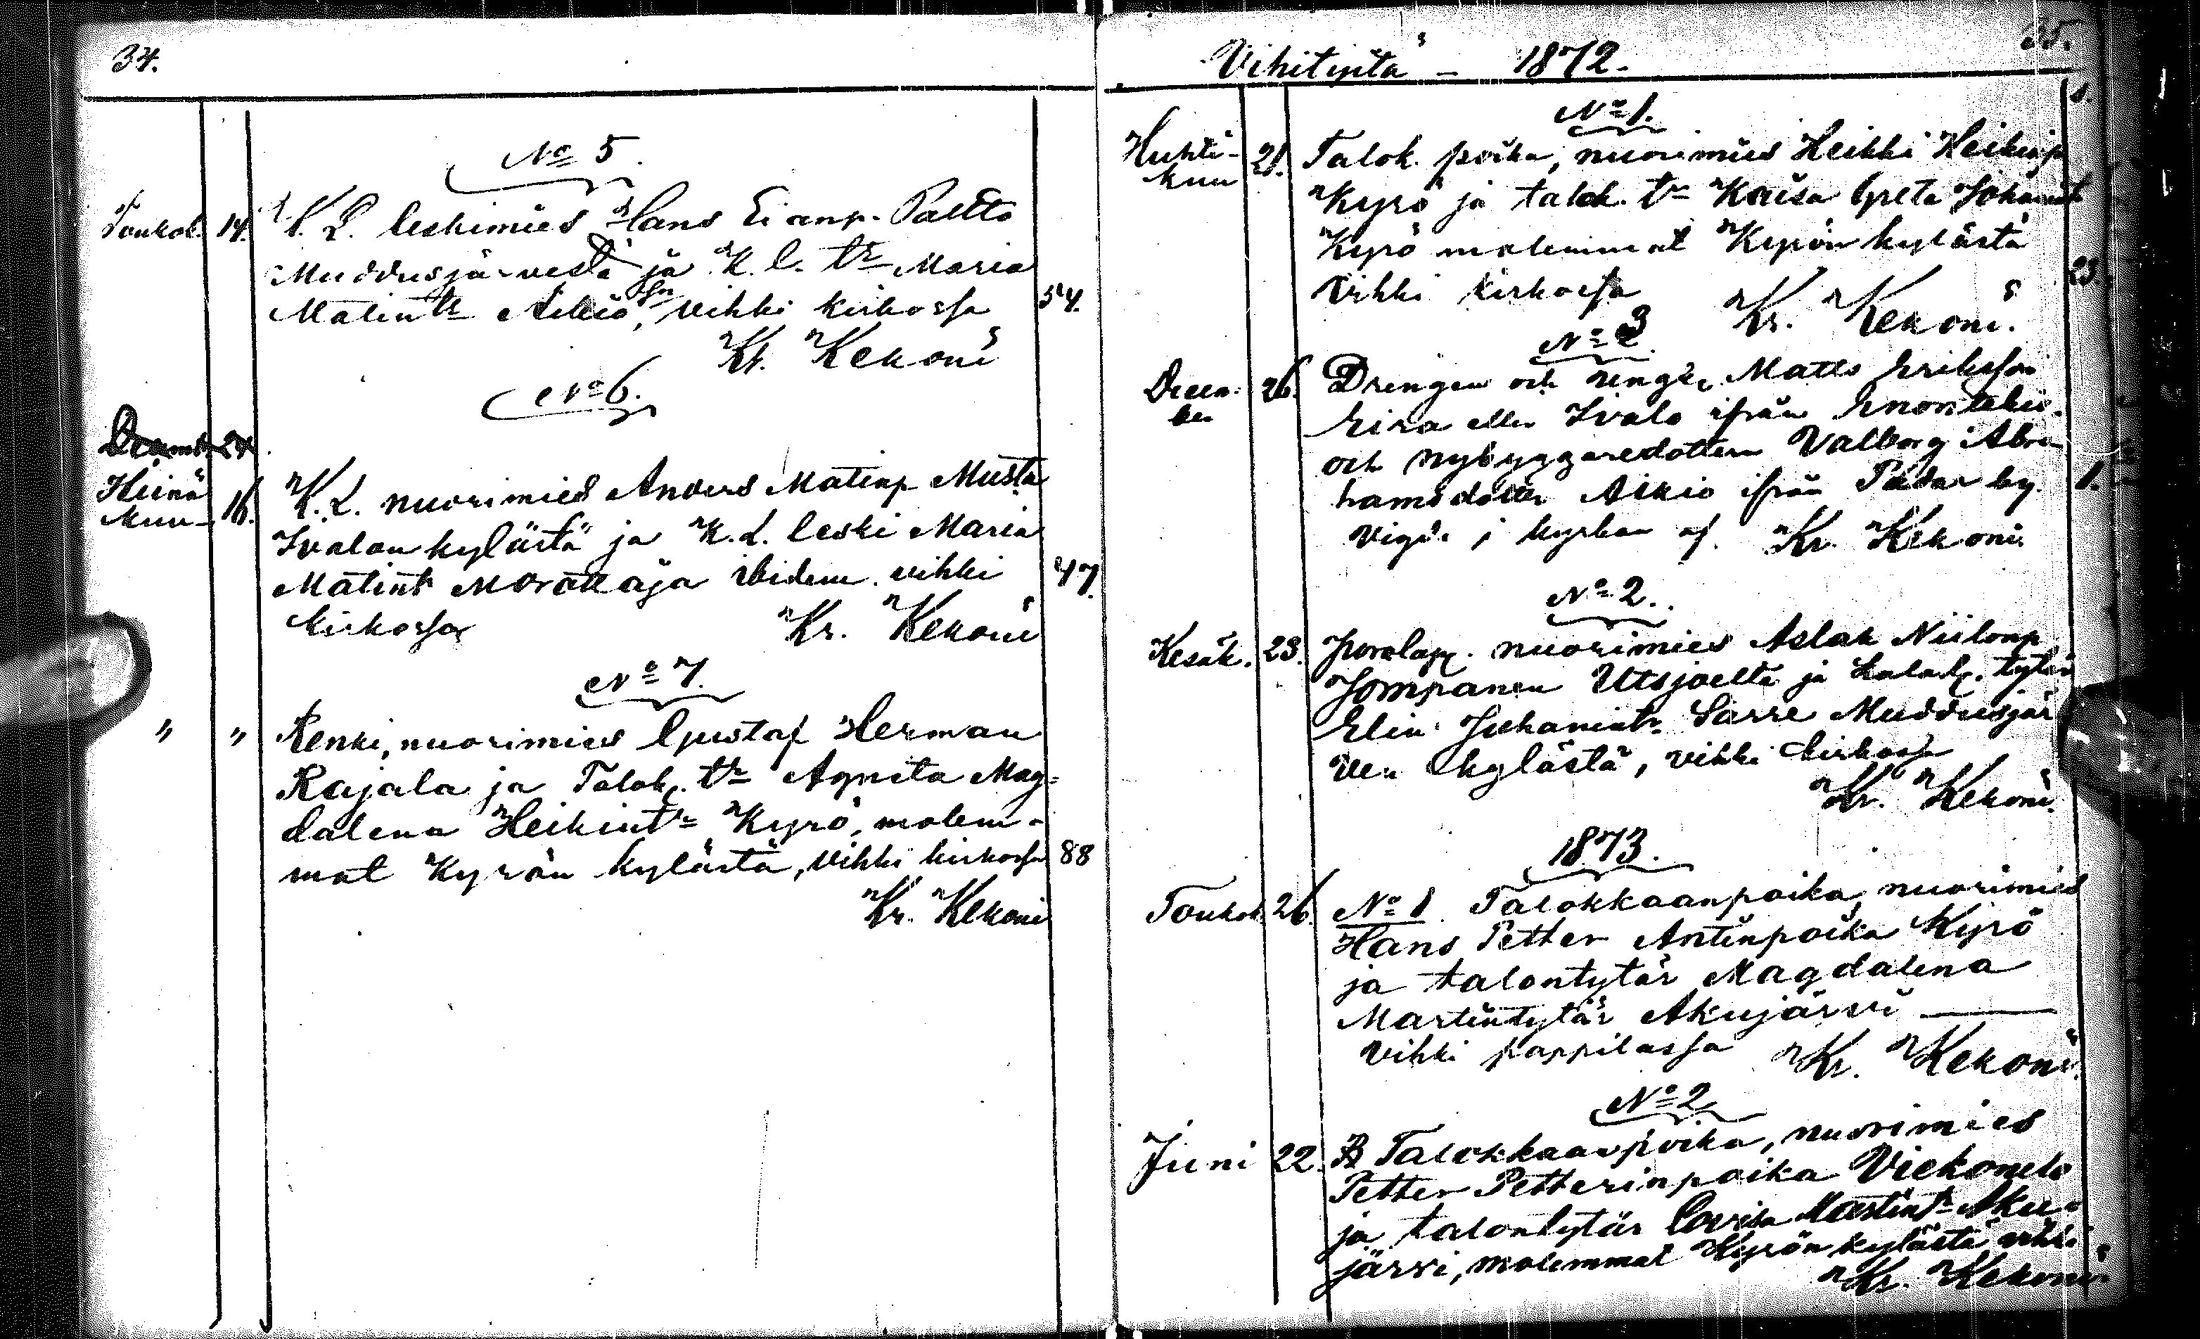 34.
No 5.
Toukok. 14. K. L. leskimies Hans Eianp. Paltto
Muddusjärvestä ja K. l. tr Maria
Matintr Aikio, vihki kirkossa 54.
Kr. Kekoni
No 6.
24
Heinä
kuu 16. K. L. nuorimies Anders Matinp Musta
Ivalon kylästä ja K. L. leski Maria
Matintr Morottaja ibidem. vihki 47.
kirkossa Kr. Kekoni
No 7.
" " Renki, nuorimies Gustaf Herman
Rajala ja Talok. tr Agneta Mag-
dalena Heikintr Kyrö, molem-
mat Kyrön kylästä, vihki kirkossa 88
Kr. Kekoni
35.
Vihityitä – 1872.
S.
No 1.
Huhti-
kuu 21. Talok. poika, nuorimies Heikki Heikinp
Kyrö ja talok. tr Kaisa Greta Johanint
Kyrö molemmat Kyrön kylästä
Vihki kirkossa 23.
Kr. Kekoni.
No 3
Decem-
ber 26. Drengen och Matts Eriksson
Eira eller Ivalo ifrån Enontekis
och nybyggaredottern Valborg Abra-
hamsdotter Aikio ifrån Padar by. 1.
Vigde i kyrkan af. Kr. Kekoni
No 2.
Kesäk. 23. Porolapp. nuorimies Aslak Niilonp
Jompanen Utsjoelta ja kalalp. tytär
Elin Juhanintr Sarre Muddusjär
ven kylästä, vihki kirkossa
Kr. Kekoni.
1873.
Toukok 26. No 1. Talokkaanpoika, nuorimies
Hans Petter Antinpoika Kyrö
ja talontytär Magdalena
Martintytär Akujärvi
Vihki pappilassa Kr. Kekoni.
No 2.
Juni 22. Talokkaanpoika, nuorimies
Petter Petterinpoika Viekonela
ja talontytär Lovisa Martintr Aku-
järvi, molemmat Kyrön kylästä vihki
Kr. Kekoni